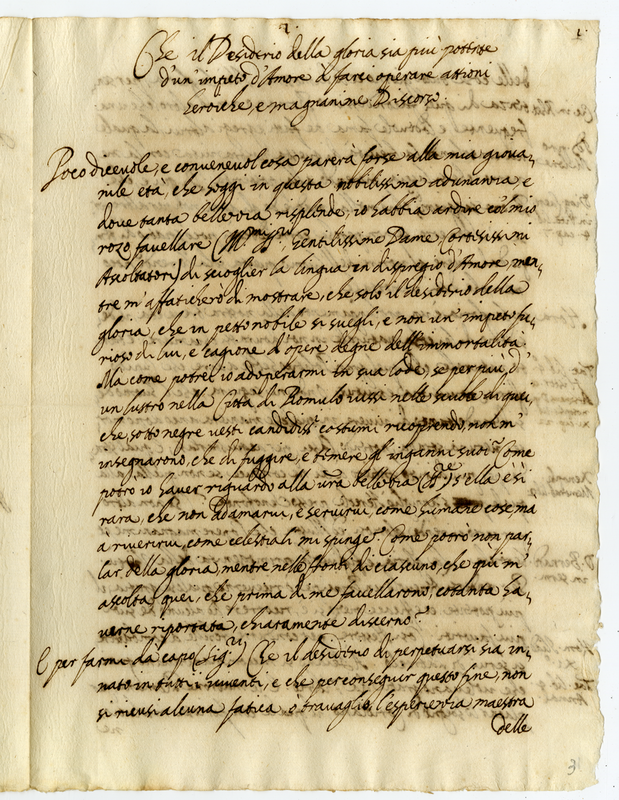 1.
Che il Desiderio della gloria sia più potente
d'un impeto d'Amore à farci operare attioni
heroiche, e magnanime Discorso
Poco dicevole, e convenevol cosa parerà forse alla mia giova-
nile età, che hoggi in questa nobilissima adunanza, e
dove tanta bellezza risplende, io habbia ardire col mio
rozo favellare Gentilissime Dame, Cortesissimi
Ascoltatori) di scioglier la lingua in dispregio d'Amore, men-
tre m'affaticherò di mostrare, che solo il desiderio della
gloria, che in petto nobile si svegli, e non un' impeto fu-
rioso di lui, è cagione d'opere degne dell'immortalità
Ma come potrei io adoperarmi in sua lode, se per più, d'
un lustro nella Città di Romulo vissi nelle scuole di quei,
che sotto negre vesti candidiss.i costumi ricoprendo, non m'
insegnarono, che di fuggire, e temere gl'inganni suoi? Come
potrò io haver riguardo alla vra bellezza s'ella è sì
rara, che non ad amarvi, e servirvi come humane cose, ma
à riverirvi, come celestiali mi spinge? Come potrò non par-
lar della gloria, mentre nelle fronti di ciascuno, che qui m'
ascolta, quei, che prima di me favellarono, cotanta ha-
verne riportata, chiaramente discerno?
E per farmi da capo (Sig.ri) Che il desiderio di perpetuarsi sia in-
nato in tutti i viventi, e che per conseguir questo fine, non
si ricusi alcuna fatica, ò travaglio, l'esperienza maestra
delle
3